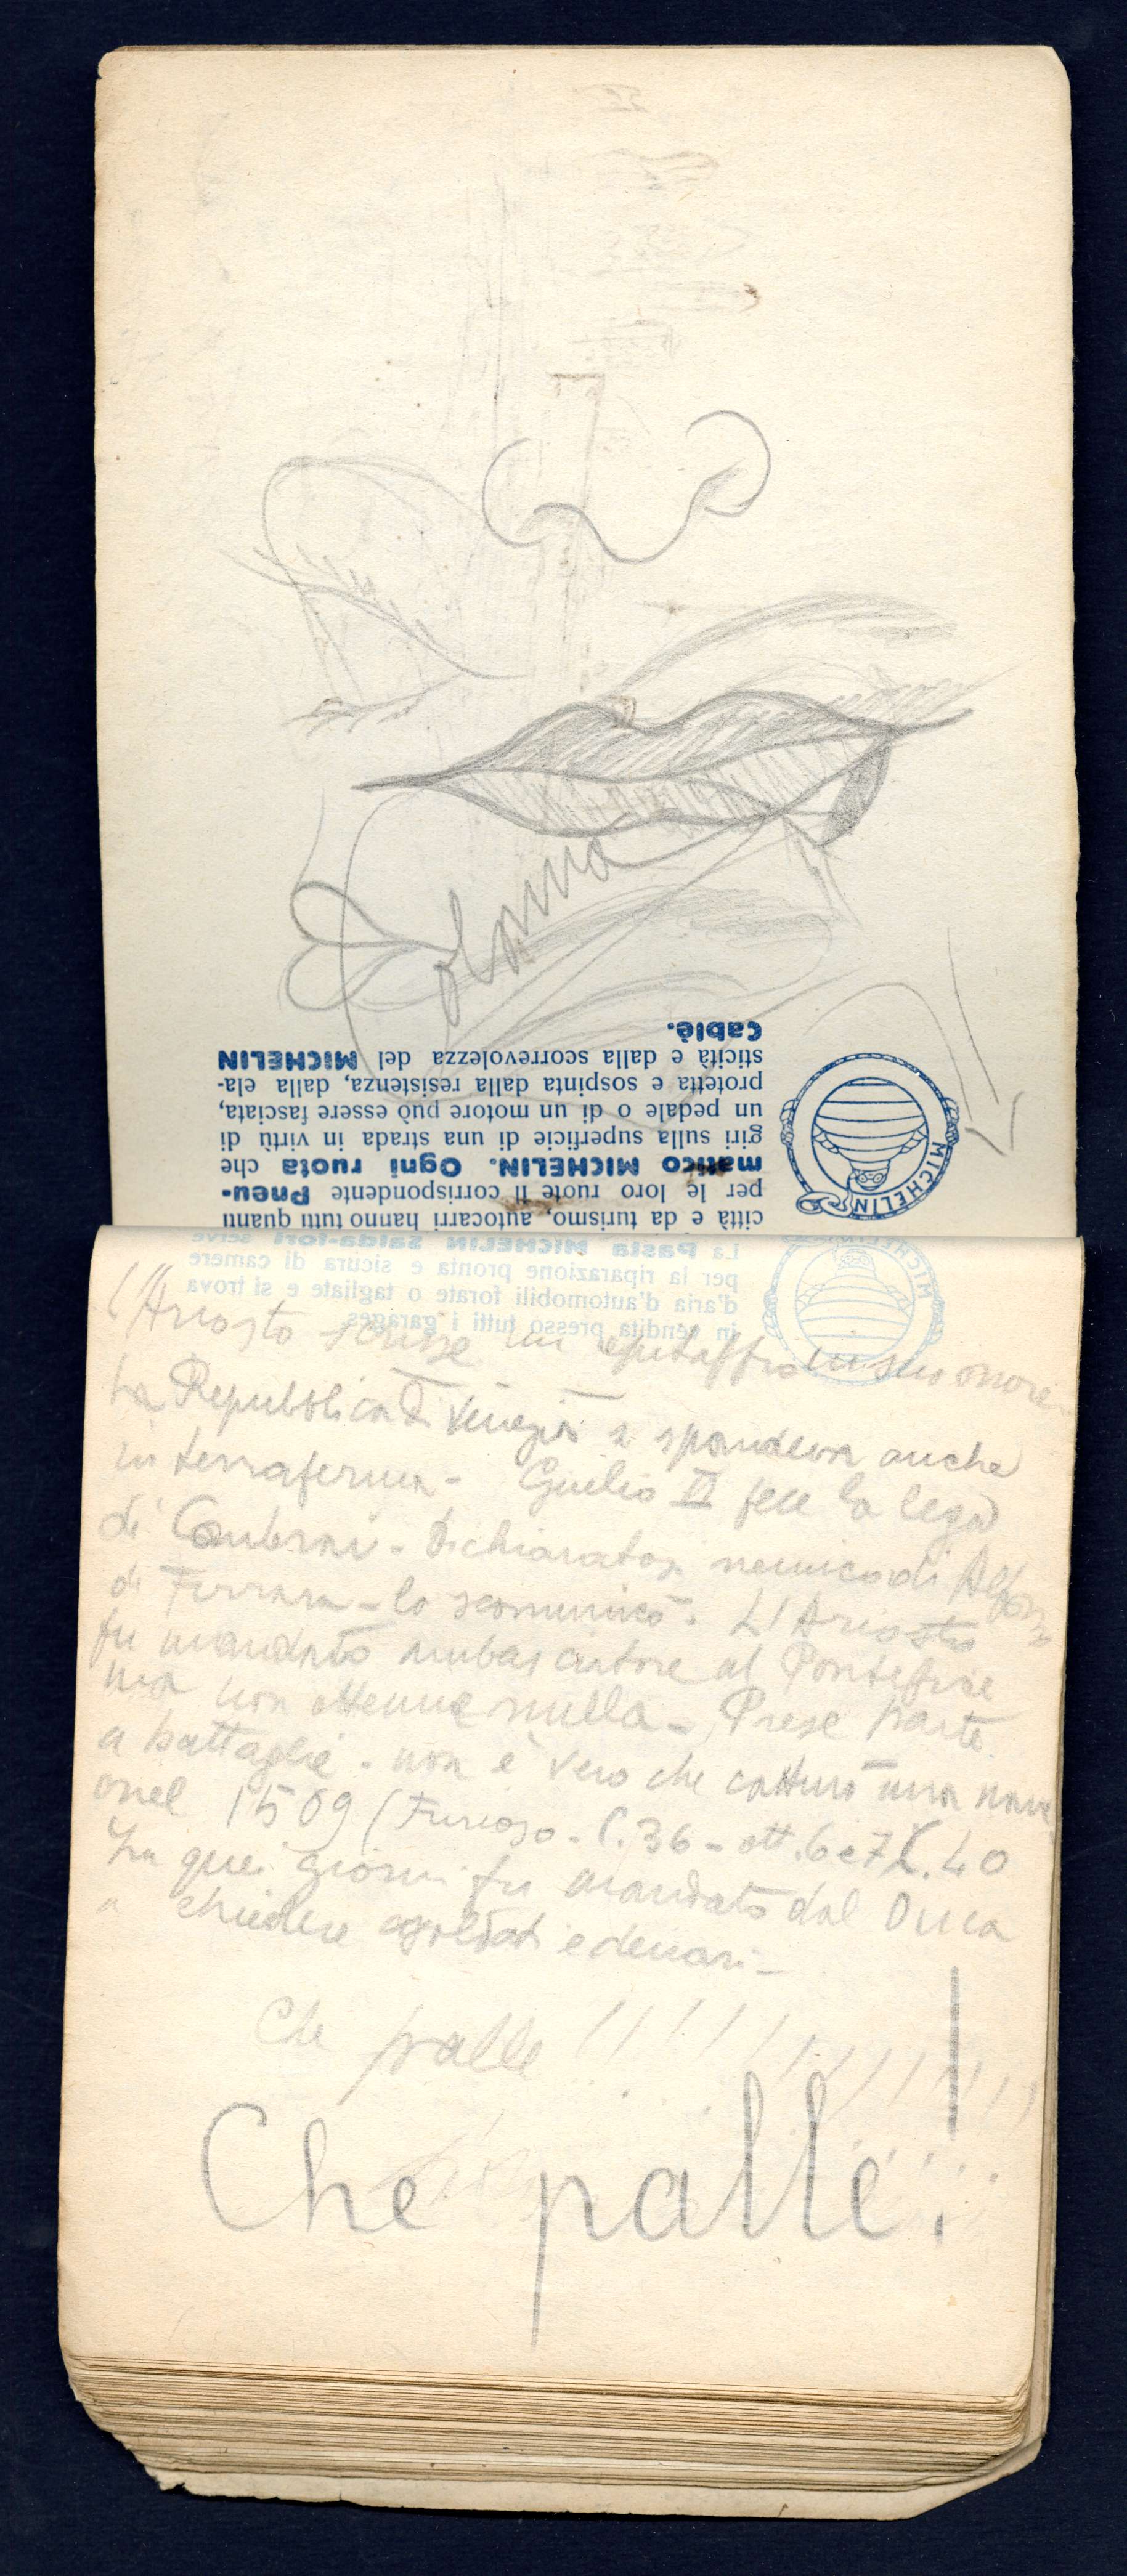 olanna
città e da turismo, autocarri hanno tutti quanti
per le loro ruote il corrispondente Pneu-
matico MICHELIN. Ogni ruota che
giri sulla superficie di una strada in virtù di
un pedale o di un motore può essere fasciata,
protetta e sospinta dalla resistenza, dalla ela-
sticità e dalla scorrevolezza del MICHELIN
Cablé.
MICHELIN
La Pasta MICHELIN salda-fori serve
per la riparazione pronta e sicura di camere
d'aria d'automobili forate o tagliate e si trova
in vendita presso tutti i garages
MICHELIN
L'Ariosto scrisse un epitaffio in suo onore
La Repubblica di Venezia si spandeva anche
in terraferma - Giulio II fece la lega
di Cambrai - Dichiaratosi nemico di Alfonso
di Ferrara - lo scomunicò. L'Ariosto
fu mandato ambasciatore al Pontefice
ma non ottenne nulla - Prese parte
a battaglie - non è vero che catturò una nave
nel 1509 (Furioso - C. 36 - ott. 6 e 7 C. 40
In quei giorni fu mandato dal Duca
a chiedere soldati e denari -
Che palle !!!!!!!!!!!!
Che palle!